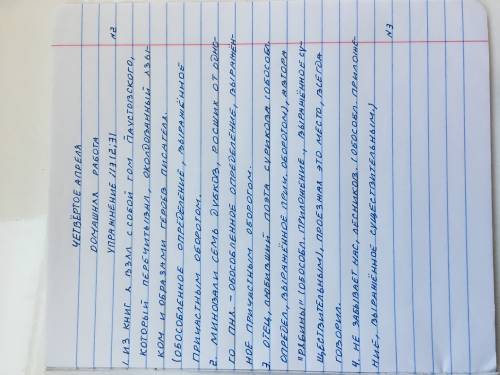 ЧЕТВЁРТОЕ АПРЕЛЯ
ДОМАШНЯЯ РАБОТА
УПРАЖНЕНИЕ 113(2;3)
№2
1. ИЗ КНИГ Я ВЗЯЛ С СОБОЙ ТОМ ПАУСТОВСКОГО,
КОТОРЫЙ ПЕРЕЧИТЫВАЛ, ОКОЛДОВАННЫЙ ЯЗЫ-
КОМ И ОБРАЗАМИ ГЕРОЕВ ПИСАТЕЛЯ.
(ОБОСОБЛЕННОЕ ОПРЕДЕЛЕНИЕ, ВЫРАЖЕННОЕ
ПРИЧАСТНЫМ ОБОРОТОМ.
2. МИНОВАЛИ СЕМЬ ДУБКОВ, РОСШИХ ОТ ОДНО-
ГО ПНЯ. - ОБОСОБЛЕННОЕ ОПРЕДЕЛЕНИЕ, ВЫРАЖЕН-
НОЕ ПРИЧАСТНЫМ ОБОРОТОМ.
3. ОТЕЦ, ЛЮБИВШИЙ ПОЭТА СУРИКОВА (ОБОСОБЛ.
ОПРЕДЕЛ., ВЫРАЖЕННОЕ ПРИЧ. ОБОРОТОМ), АВТОРА
"РЯБИНЫ" (ОБОСОБЛ. ПРИЛОЖЕНИЕ, ВЫРАЖЕННОЕ СУ-
ЩЕСТВИТЕЛЬНЫМ), ПРОЕЗЖАЯ ЭТО МЕСТО, ВСЕГДА
ГОВОРИЛ.
4. НЕ ЗАБЫВАЕТ НАС, ЛЕСНИКОВ. (ОБОСОБЛ. ПРИЛОЖЕ-
НИЕ, ВЫРАЖЕННОЕ СУЩЕСТВИТЕЛЬНЫМ.)
№3